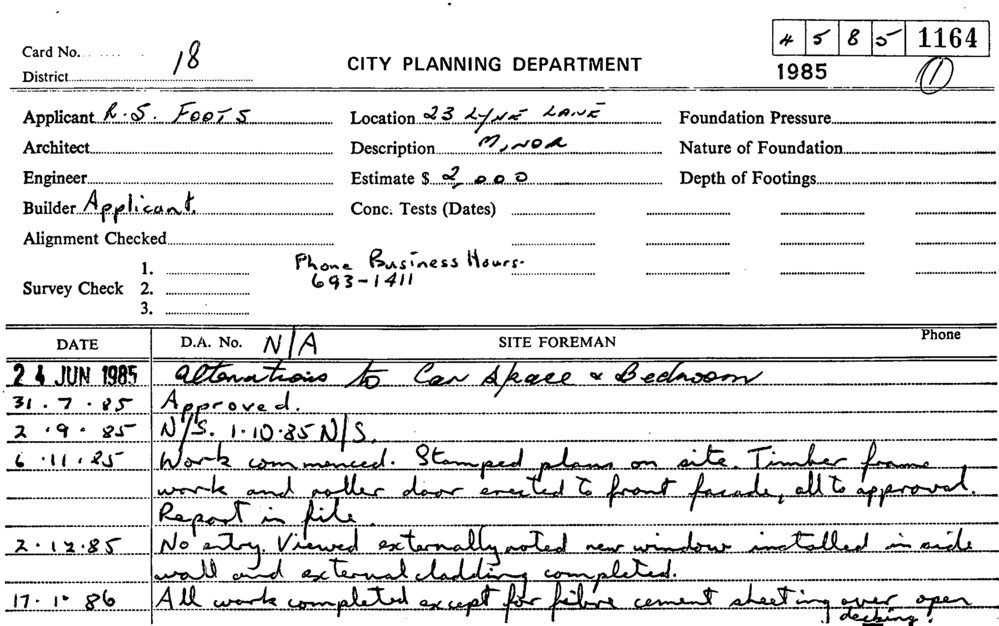 45851164
Card No. 18
District
CITY PLANNING DEPARTMENT
1985
1
Applicant R.S. FOOTS
Location 23 LYNE LANE
Foundation Pressure
Architect
Description MINOR
Nature of Foundation
Engineer
Estimate $ 2,000
Depth of Footings
Builder Applicant.
Conc. Tests (Dates)
Alignment Checked
Phone Business Hours.
693-1411
Survey Check
1.
2.
3.
DATE
D.A. No. N/A
SITE FOREMAN
Phone
24 JUN 1985 Alterations to Car Space & Bedroom
31.7.85 Approved.
2.9.85 N/S. 1.10.85 N/S.
6.11.85 Work commenced. Stamped plans on site. Timber frame
work and roller door erected to front facade, all to approval.
Report in file.
2.12.85 No entry. Viewed externally noted new window installed in side
wall and external cladding completed.
17.1.86 All work completed except for fibre cement sheeting over open
decking.